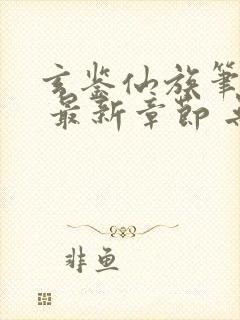 玄鉴仙族笔
最新章节
非鱼